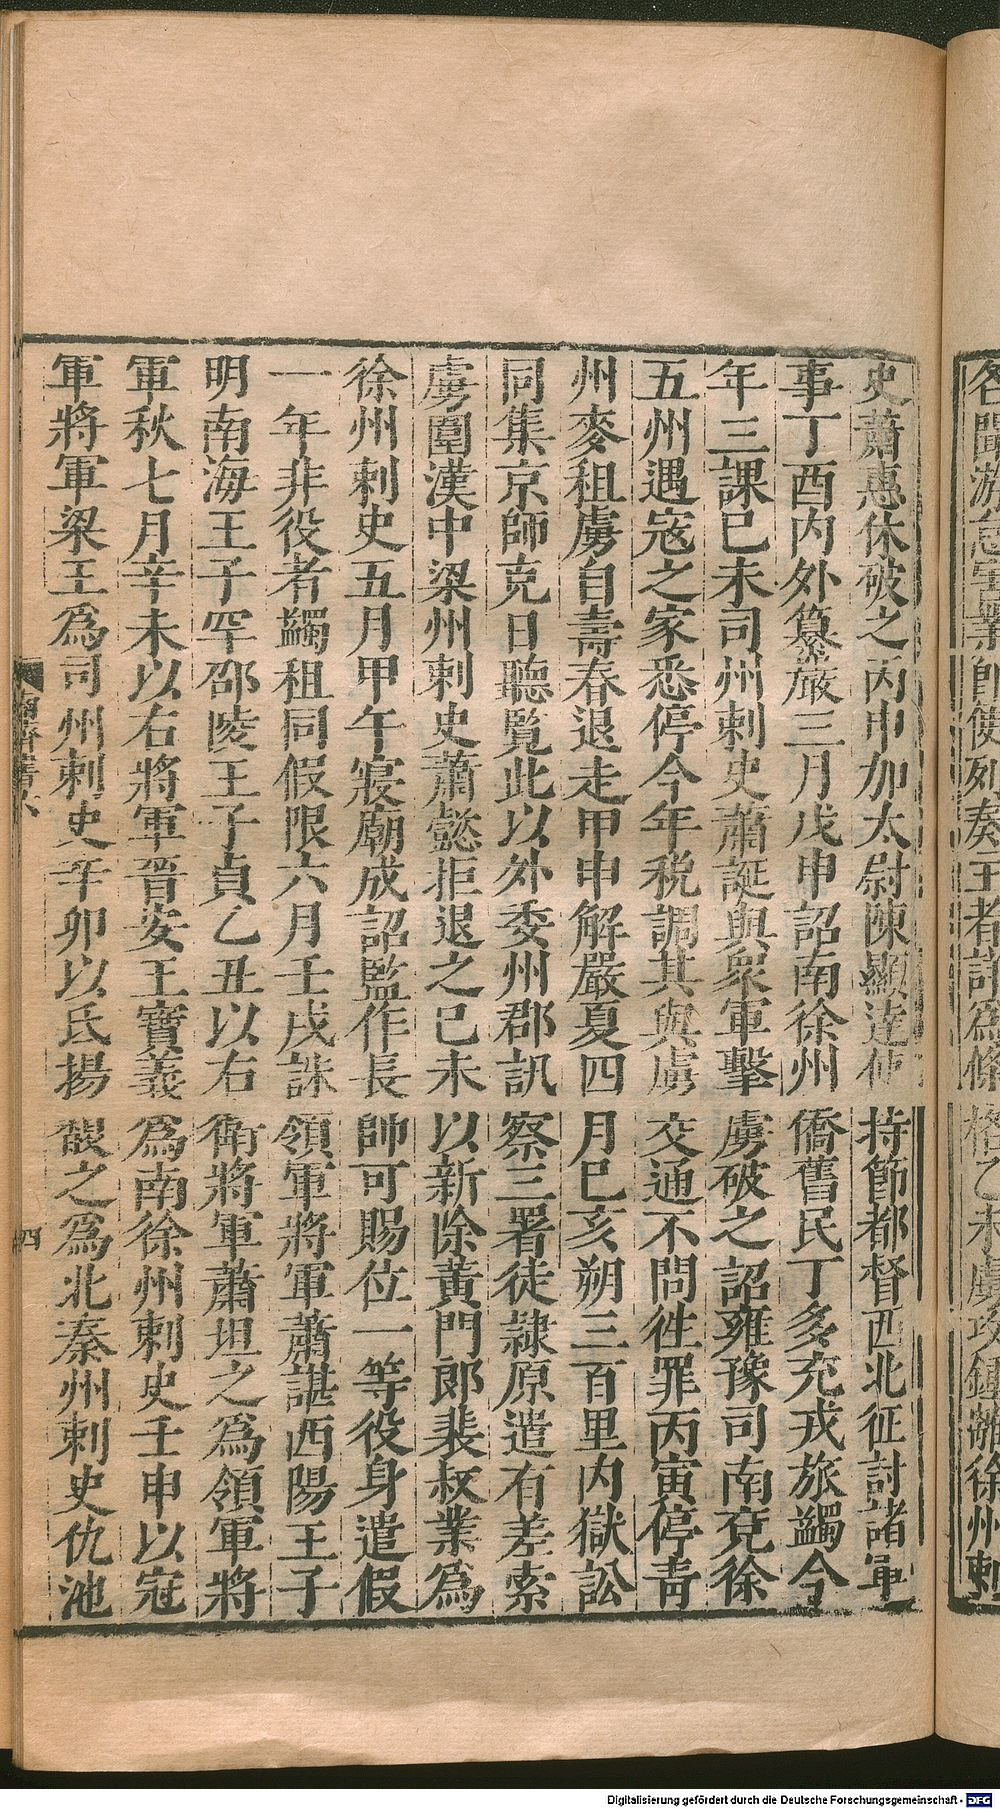 史蕭惠休破之丙申加太尉陳顯達使持節都督西北征討諸軍
事丁酉内外纂嚴三月戊申詔南徐州僑舊民丁多充戎旅蠲今
年三課己未司州刺史蕭誕與衆軍擊虜破之詔雍豫司南兗徐
五州遇寇之家悉停今年税調其與虜交通不問徃罪丙寅停青
州麥租虜自壽春退走甲申解嚴夏四月巳亥朔三百里内獄訟
同集京師克日聽覽此以外委州郡訊察三署徒隷原遣有差索
虜圍漢中梁州刺史蕭懿拒退之己未以新除黃門郎裴叔業爲
徐州刺史五月甲午寢廟成詔監作長帥可賜位一等役身遣假
一年非役者蠲租同假限六月壬戌誅領軍將軍蕭諶西陽王子
明南海王子罕邵陵王子貞乙丑以右衛將軍蕭坦之爲領軍將
軍秋七月辛未以右將軍晉安王寶義爲南徐州刺史壬申以冠
軍將軍梁王爲司州刺史辛卯以氐揚馥之爲北秦州刺史仇池
四
Digitalisierung gefördert durch die Deutsche Forschungsgemeinschaft - DFG